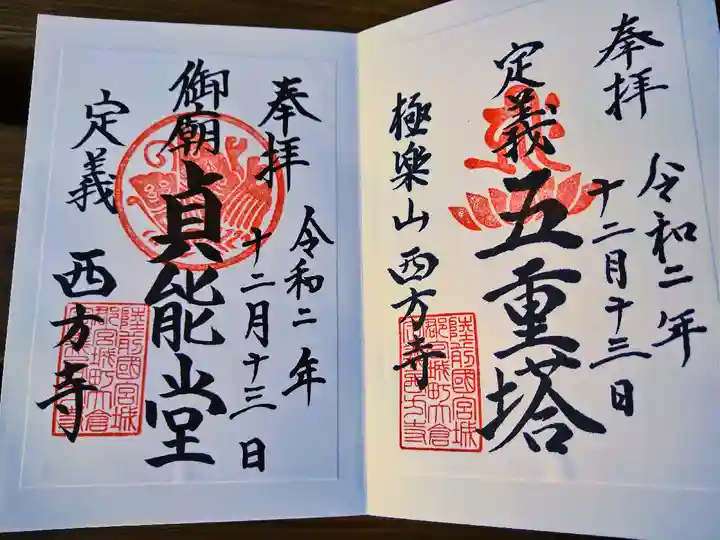 奉拝
令和二年
十二月十三日
定義
五重塔
極楽山 西方寺
陸前國宮城
郡宮城町大倉
奉拝
令和二年
十二月十三日
御廟
貞能堂
定義
西方寺
陸前國宮城
郡宮城町大倉